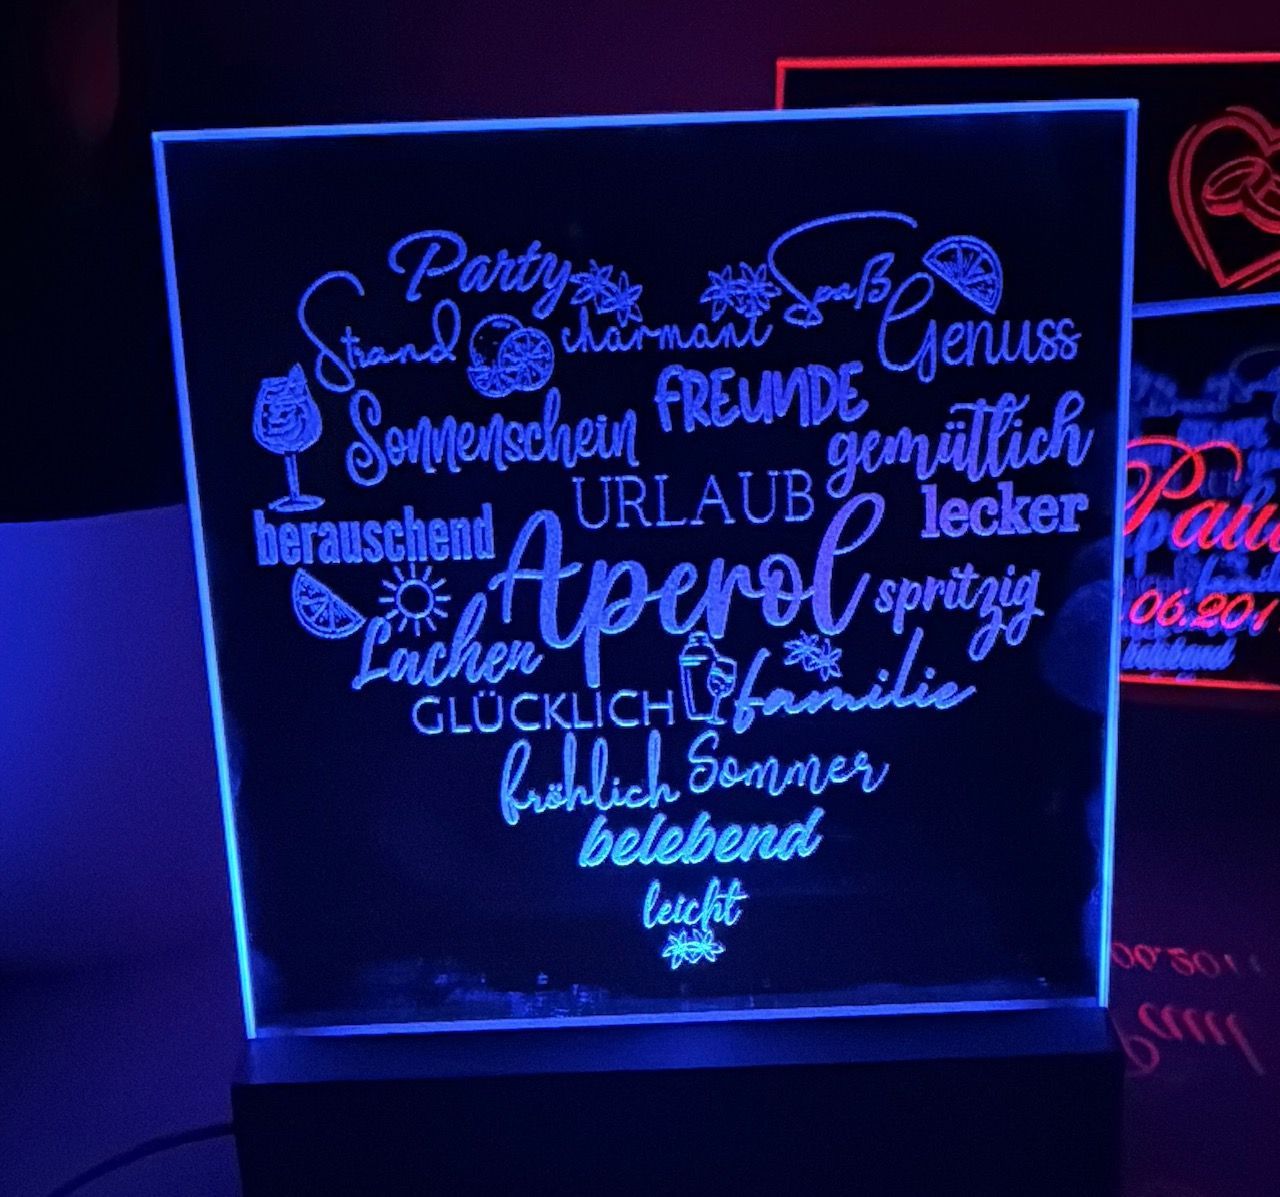 Party
Spaß
Strand
charmant
Genuss
Sonnenschein
FREUNDE
gemütlich
URLAUB
lecker
berauschend
Aperol
spritzig
Lachen
GLÜCKLICH
familie
fröhlich
Sommer
belebend
leicht
Paul
06.201